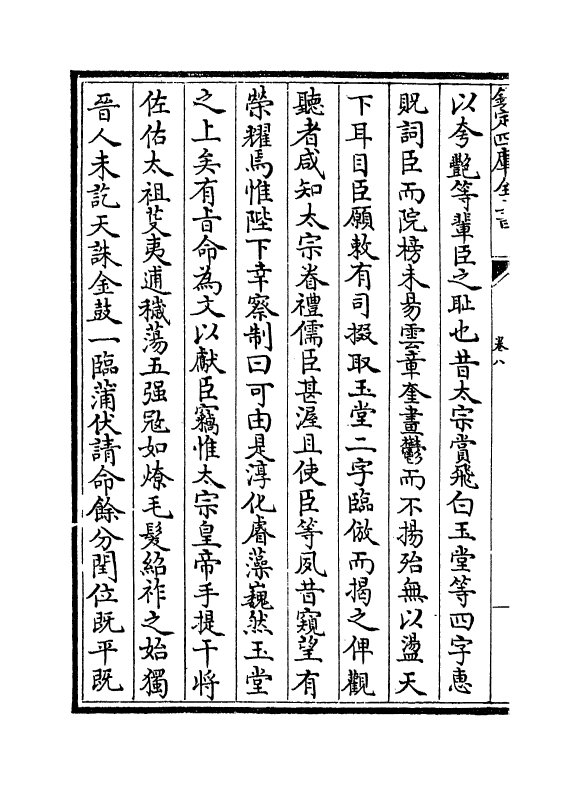 欽定四庫全書
卷八
以夸艶等輩臣之耻也昔太宗賞飛白玉堂等四字惠
貺詞臣而院榜未易雲章奎畫鬱而不揚殆無以盪天
下耳目臣願敕有司掇取玉堂二字臨倣而揭之俾觀
聽者咸知太宗眷禮儒臣甚渥且使臣等夙昔窺望有
榮耀焉惟陛下幸察制曰可由是淳化睿藻巍然玉堂
之上矣有旨命為文以獻臣竊惟太宗皇帝手提干將
佐佑太祖芟夷逋穢蕩五强冦如燎毛髮紹祚之始獨
晉人未訖天誅金鼓一臨蒲伏請命餘分閏位既平既